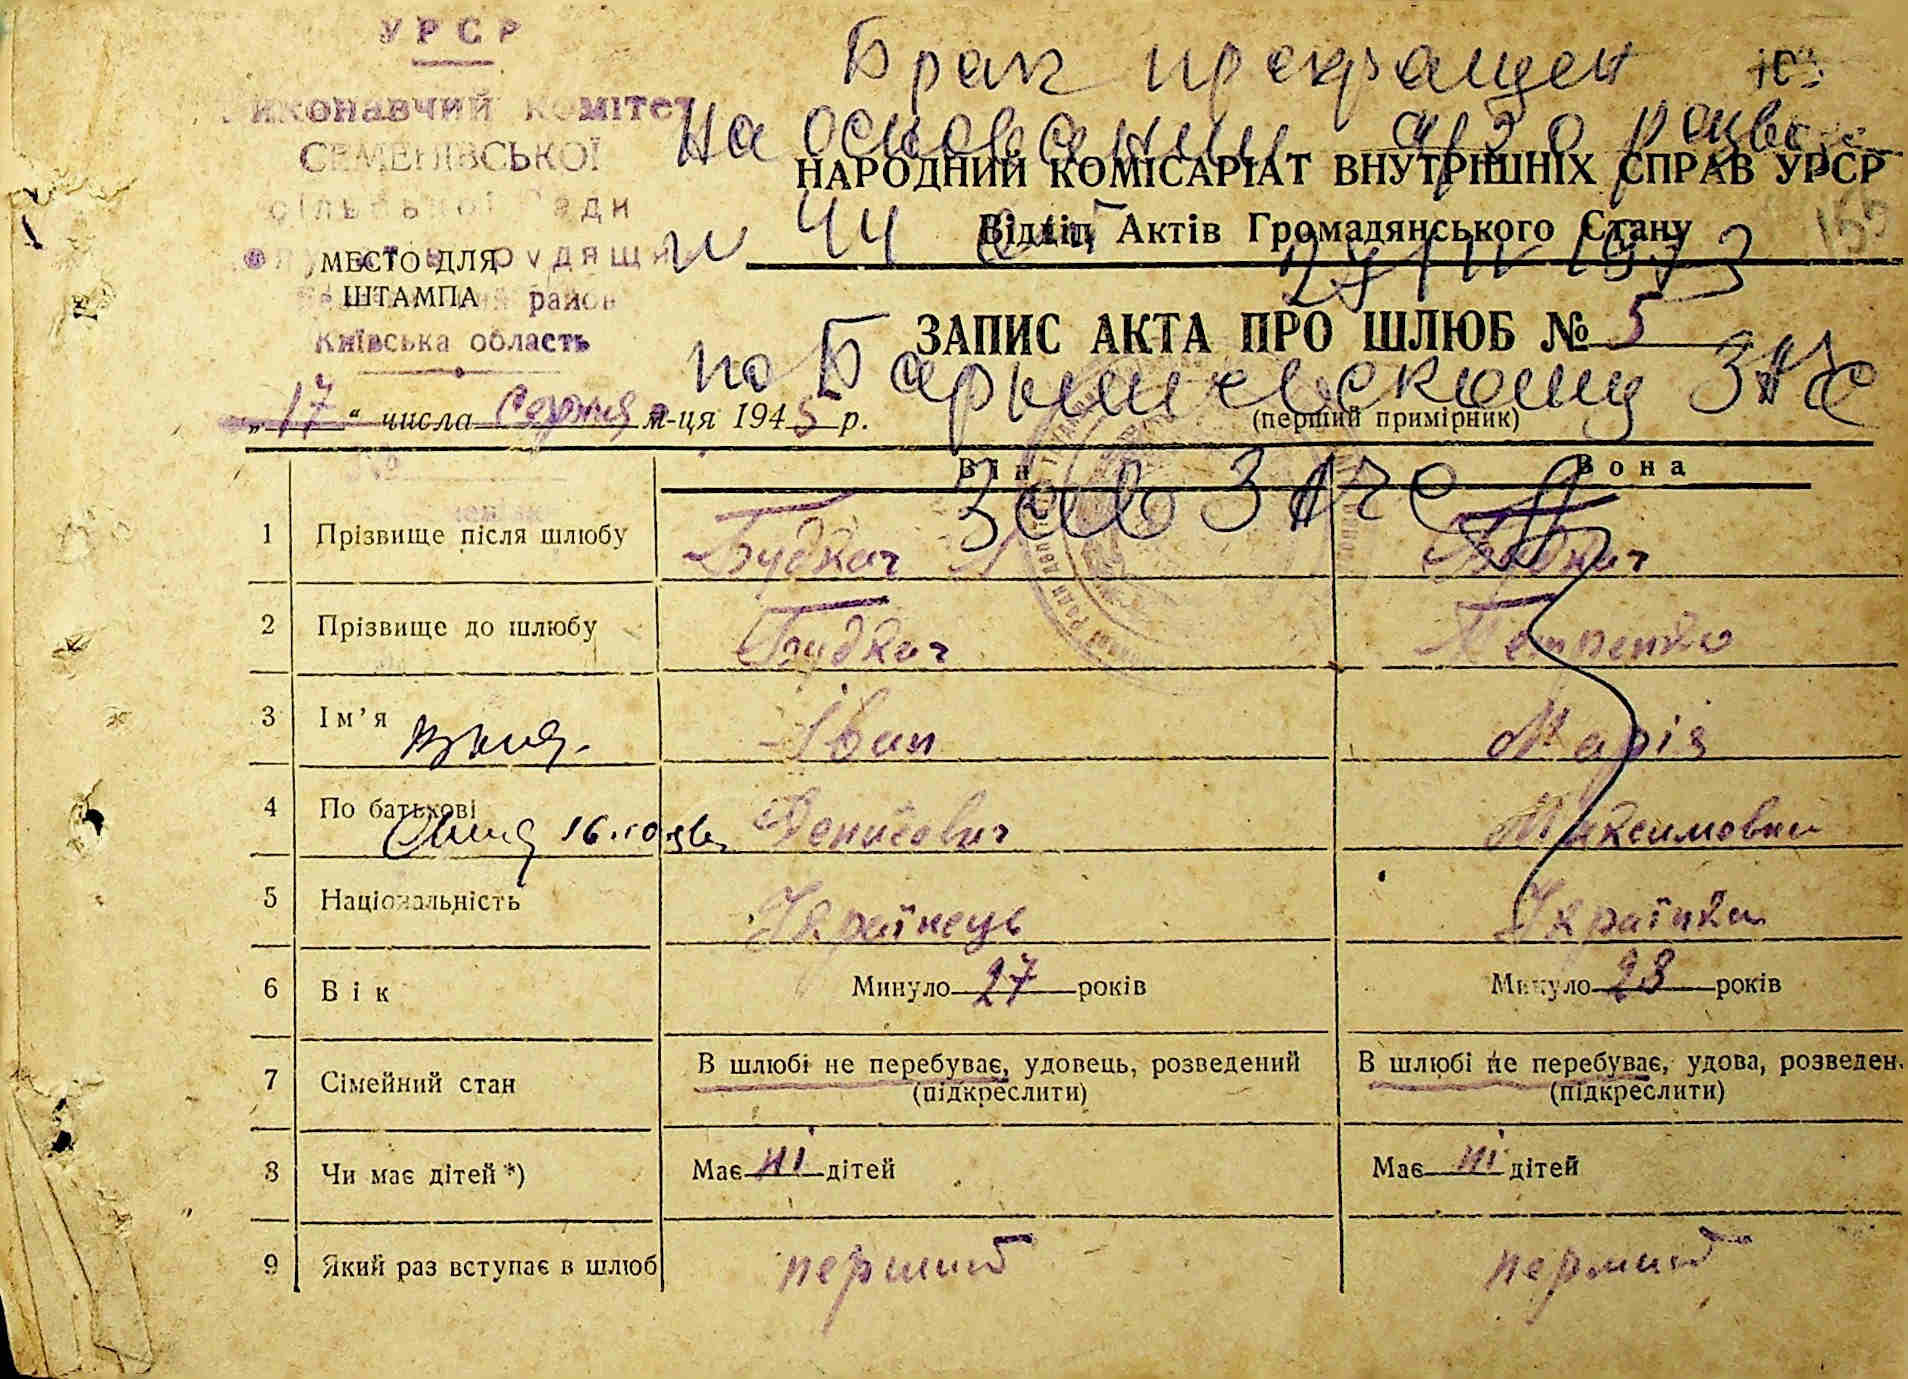 УРСР
Виконавчий Комітет
СЕМЕНІВСЬКОЇ
сільської Ради
депутатів трудящих
МЕСТО ДЛЯ
ШТАМПА
район
Київська область
Брак прекращен
На основании а/з о разводе
НАРОДНИЙ КОМІСАРІАТ ВНУТРІШНІХ СПРАВ УРСР
Відділ Актів Громадянського Стану
N 44 от 1973
ЗАПИС АКТА ПРО ШЛЮБ № 5
по Барышевскому ЗАГС
(перший примірник)
„17“ числа Серпня м-ця 1945 р.
Зав ЗАГС
Він Вона
1 Прізвище після шлюбу Будкач Будкач
2 Прізвище до шлюбу Будкач Петренко
3 Ім’я Іван Марія
4 По батькові Денисович Максимовна
5 Національність Українець Українка
6 Вік Минуло 27 років Минуло 23 років
7 Сімейний стан В шлюбі не перебуває, удовець, розведений В шлюбі не перебуває, удова, розведен.
(підкреслити) (підкреслити)
8 Чи має дітей *) Має ні дітей Має ні дітей
9 Який раз вступає в шлюб перший перший